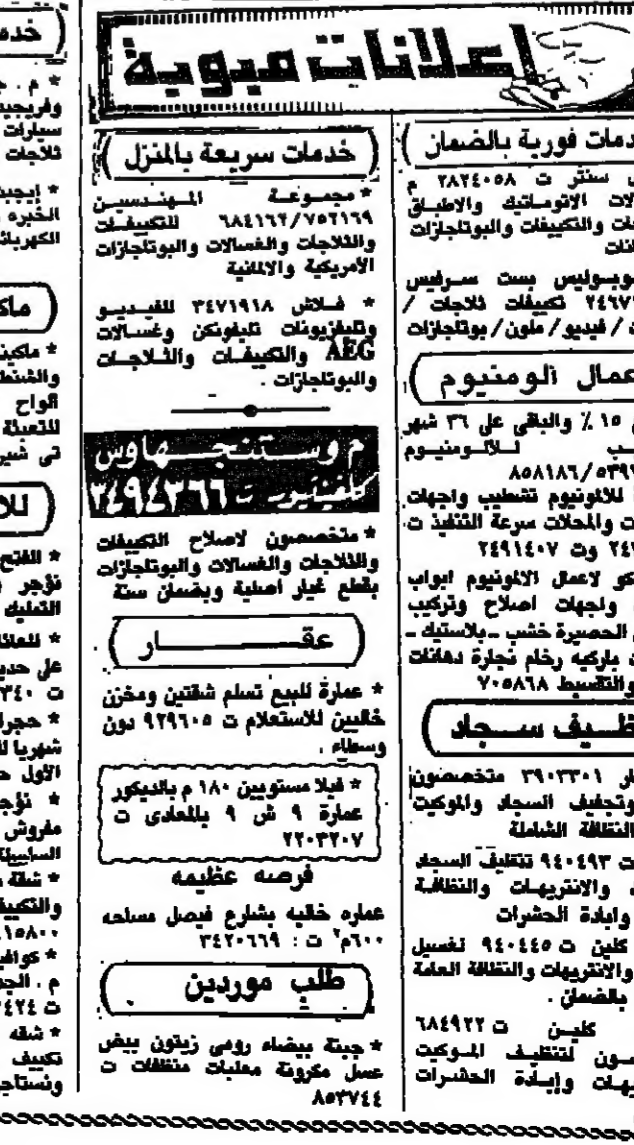 إعلانات مبوبة
دمات فورية بالضمان
سنتر ت ٢٨٢٤٠٥٨ م
لات الاتوماتيك والاطباق
ات والتكييفات والبوتاجازات
انات
وبوليس بست سرفيس
٢٤٦٧ تكييفات ثلاجات /
/ فيديو / ملون / بوتاجازات
عمال الومنيوم
١٥ ٪ والباقى على ٣٦ شهر
ب للالومنيوم
٨٥٨١٨٦/٥٣٩
للالونيوم تشطيب واجهات
ت والمحلات سرعة التنفيذ ت
وت ٢٤٩١٤٠٧
كو لاعمال الالونيوم ابواب
واجهات اصلاح وتركيب
الحصيرة خشب ـ بلاستيك ـ
باركيه رخام نجارة دهانات
والتقسيط ٧٠٥٨٦٨
ظيف سجاد
ار ٣٩٠٣٣٠١ متخصصون
وتجفيف السجاد والموكيت
النظافة الشاملة
ت ٩٤٠٤٩٣ تنظيف السجاد
والانتريهات والنظافة
وابادة الحشرات
كلين ت ٩٤٠٤٤٥ تغسيل
والانتريهات والنظافة العامة
بالضمان .
كلين ت ٦٨٤٩٢٢
ون لتنظيف الموكيت
يهات وإبادة الحشرات
خدمات سريعة بالمنزل
* مجموعة المهندسين
٦٨٤١٦٢/٧٥٢١٦٩ للتكييفات
والثلاجات والغسالات والبوتاجازات
الأمريكية والالمانية
* فلاش ٣٤٧١٩١٨ للفيديو
وتليفزيونات تليفونكن وغسالات
AEG والتكييفات والثلاجات
والبوتاجازات .
م وستنجهاوس
كلفنيتور ت ٣٤٩٤٣٦٦
* متخصصون لاصلاح التكييفات
والثلاجات والغسالات والبوتاجازات
بقطع غيار اصلية وبضمان سنة
عقار
* عمارة للبيع تسلم شقتين ومخزن
خاليين للاستعلام ت ٩٢٩٦٠٥ دون
وسطاء .
* فيلا مستويين ١٨٠ م بالديكور
عمارة ٩ ش ٩ بالمعادى ت
٢٢٠٣٢٠٧
فرصه عظيمه
عماره خاليه بشارع فيصل مساحه
٦٠٠م٢ ت : ٣٤٢٠٦٦٩
طلب موردين
* جبنة بيضاء رومى زيتون بيض
عسل مكرونة معلبات منظفات ت
٨٥٣٧٤٤
خدم
* م . ج
وفريجيد
سيارات
ثلاجات
* إيجيد
الخبره
الكهربائ
ماك
* ماكين
والشنط
الواح
للتعبئة
تى شير
للا
* للفتح
نؤجر
التمليك
* للعائ
على حدي
* حجرا
شهريا لل
الأول
* نؤج
مفروش
* شقة
والتكييف
* كوافي
م . الجد
* شقه
تكييف
ونستاج